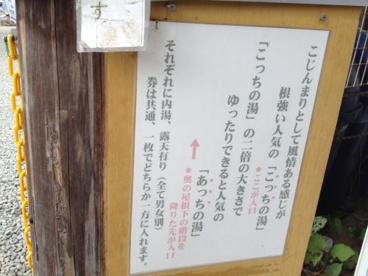 す
こじんまりとして風情ある感じが
根強い人気の「こっちの湯」
※ここが入口
「こっちの湯」の二倍の大きさで
ゆったりできると人気の
「あっちの湯」
※奥の屋根下の階段を
降りた先が入口
それぞれに内湯、露天有り（全て男女別）
券は共通、一枚でどちらか一方に入れます。